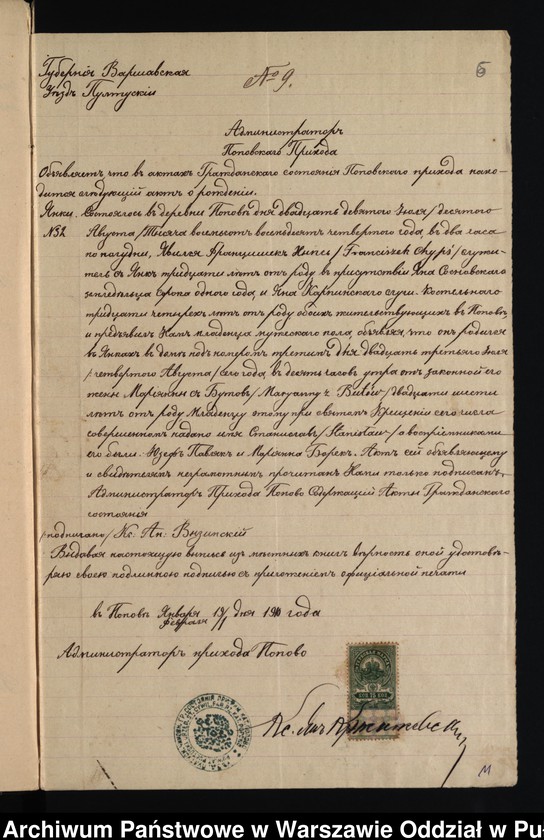 Губернія Варшавская
Уѣздъ Пултускій
№ 9.
Администраторъ
Поповскаго Прихода
Объявляетъ что въ актахъ Гражданскаго состоянія Поповскаго прихода нахо-
дится слѣдующій актъ о рожденіи.
Янки. Состоялось въ деревнѣ Поповѣ дня двадцать девятаго Іюля /десятаго
№ 52 Августа/ Тысяча восемьсотъ восемьдесятъ четвертаго года въ два часа
по полудни, Явился Францишекъ Хипсъ /Franciszek Chyps/ служи-
тель съ Янкъ тридцати лѣтъ отъ роду въ присутствіи Яна Сосновскаго
земледѣльца сорока одного года, и Яна Карпинскаго слуги Костельнаго
тридцати четырехъ лѣтъ отъ роду обоихъ жительствующихъ въ Поповѣ
и предъявилъ Намъ младенца мужескаго пола, объявляя, что онъ родился
въ Янкахъ въ домѣ подъ номеромъ третимъ дня двадцать третьяго Іюля
/четвертаго Августа/ сего года, въ десять часовъ утра отъ законной его
жены Маріянны съ Бутовъ /Maryanny z Butów/ двадцати шести
лѣтъ отъ роду Младенцу этому при святомъ Крещеніи сего числа
совершенномъ надано имя Станиславъ /Stanisław/ а воспріемниками
его были Юзефъ Павлякъ и Маріянна Борекъ. Актъ сей объявляющему
и свидѣтелямъ неграмотнымъ прочитанъ Нами только подписанъ.
Администраторъ Прихода Попово Содержащій Акты Гражданскаго
состоянія
/подписано/ Кс. Ан:
Выдавая настоящую выпись изъ мѣстныхъ книгъ вѣрность оной удостовѣ-
ряю своею подлинною подписью съ приложеніемъ официальной печати
въ Поповѣ Января 19/1 дня 1910 года
Февраля
Администраторъ прихода Попово
Кс.
M
Archiwum Państwowe w Warszawie Oddział w Pu